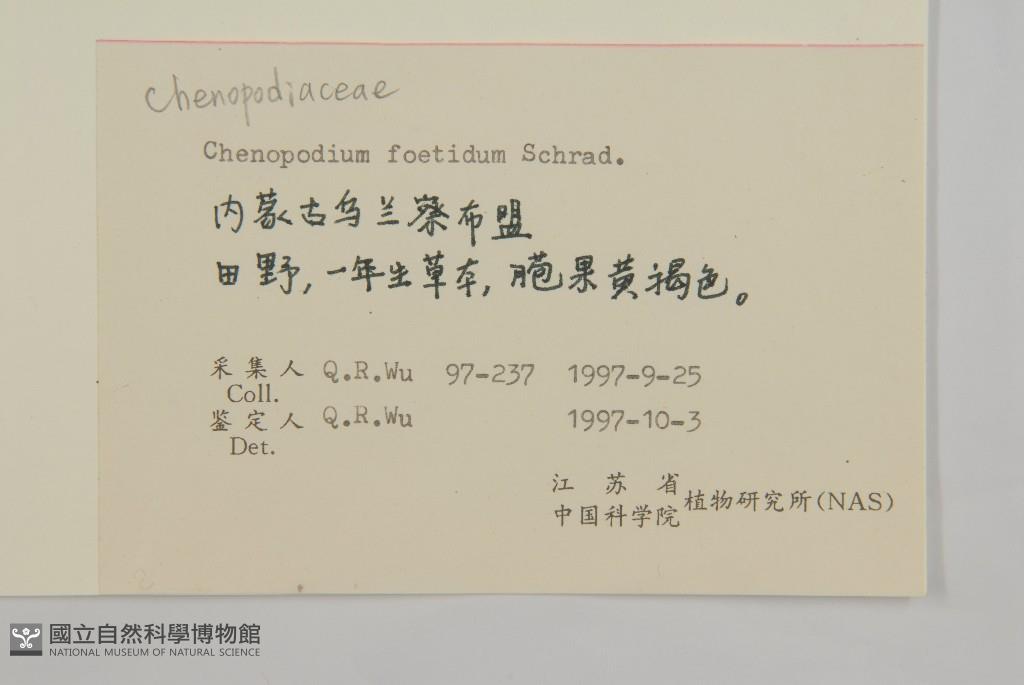 Chenopodiaceae
Chenopodium foetidum Schrad.
内蒙古乌兰察布盟
田野,一年生草本,胞果黄褐色。
采集人 Q.R.Wu 97-237 1997-9-25
Coll.
鉴定人 Q.R.Wu 1997-10-3
Det.
江苏省
中国科学院 植物研究所(NAS)
國立自然科學博物館
NATIONAL MUSEUM OF NATURAL SCIENCE